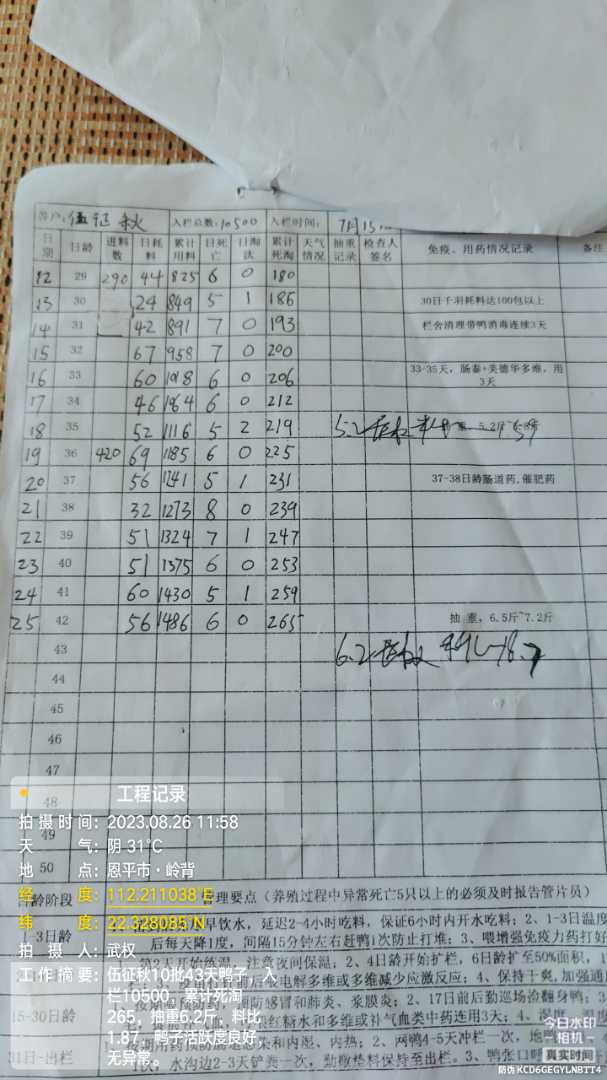 客户: 伍征秋 入栏总数: 10500 入栏时间: 7月15
日期 日龄 进料数 日耗料 累计用料 日死亡 日淘汰 累计死淘 天气情况 抽重记录 检查人签名 免疫、用药情况记录 备注
12 29 290 44 825 6 0 180
13 30 24 849 5 1 186 30日千羽耗料达100包以上
14 31 42 891 7 0 193 栏舍清理带鸭消毒连续3天
15 32 67 958 7 0 200
16 33 60 1018 6 0 206 33-35天，肠泰+美德华多维，用3天
17 34 46 1064 6 0 212
18 35 52 1116 5 2 219 5.2
19 36 420 69 1185 6 0 225
20 37 56 1241 5 1 231 37-38日龄肠道药，催肥药
21 38 32 1273 8 0 239
22 39 51 1324 7 1 247
23 40 51 1375 6 0 253
24 41 60 1430 5 1 259
25 42 56 1486 6 0 265 抽重，6.5斤~7.2斤
43 6.2
44
45
46
47
48
49
50
工程记录
拍摄时间: 2023.08.26 11:58
天气: 阴 31°C
地点: 恩平市·岭背
经度: 112.211038°E
纬度: 22.328085°N
拍摄人: 武权
工作摘要: 伍征秋10批43天鸭子，入
栏10500，累计死淘
265，抽重6.2斤，料比
1.87，鸭子活跃度良好，
无异常。
日龄阶段 管理要点（养殖过程中异常死亡5只以上的必须及时报告管片员）
3日龄 早饮水，延迟2-4小时吃料，保证6小时内开水吃料；2、1-3日温度
后每天降1度，间隔15分钟左右赶鸭1次防止打堆；3、喂增强免疫力药打好
注意夜间保温；2、4日龄开始扩栏，6日龄扩至50%面积，
电解多维或多维减少应激反应；4、保持干爽，加强通
15-30日龄 防感冒和肺炎、浆膜炎；2、17日前后勤巡场浍翻身鸭；3
红糖水和多维或补气血类中药连用3天；4、湿度
31日-出栏 和内热；2、网鸭4-5天冲栏一次，地
次，水沟边2-3天铲粪一次，勤撒垫料保持至出栏。3、鸭张口呼
今日水印
相机
真实时间
防伪 KCD6GEGYLNBTT4